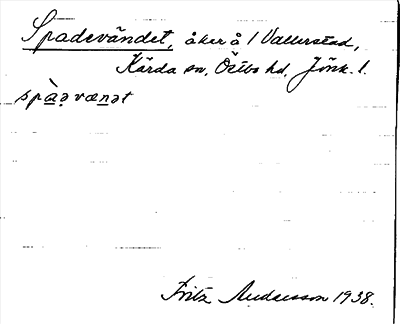 Spadevändet, åker å 1 Vallerstad,
Kärda sn, Östbo hd, Jönk. l.
spàə̣vænət
Fritz Andersson 1938.